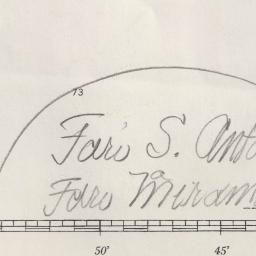 73
Faro S. Anto
Faro Miram
50' 45'